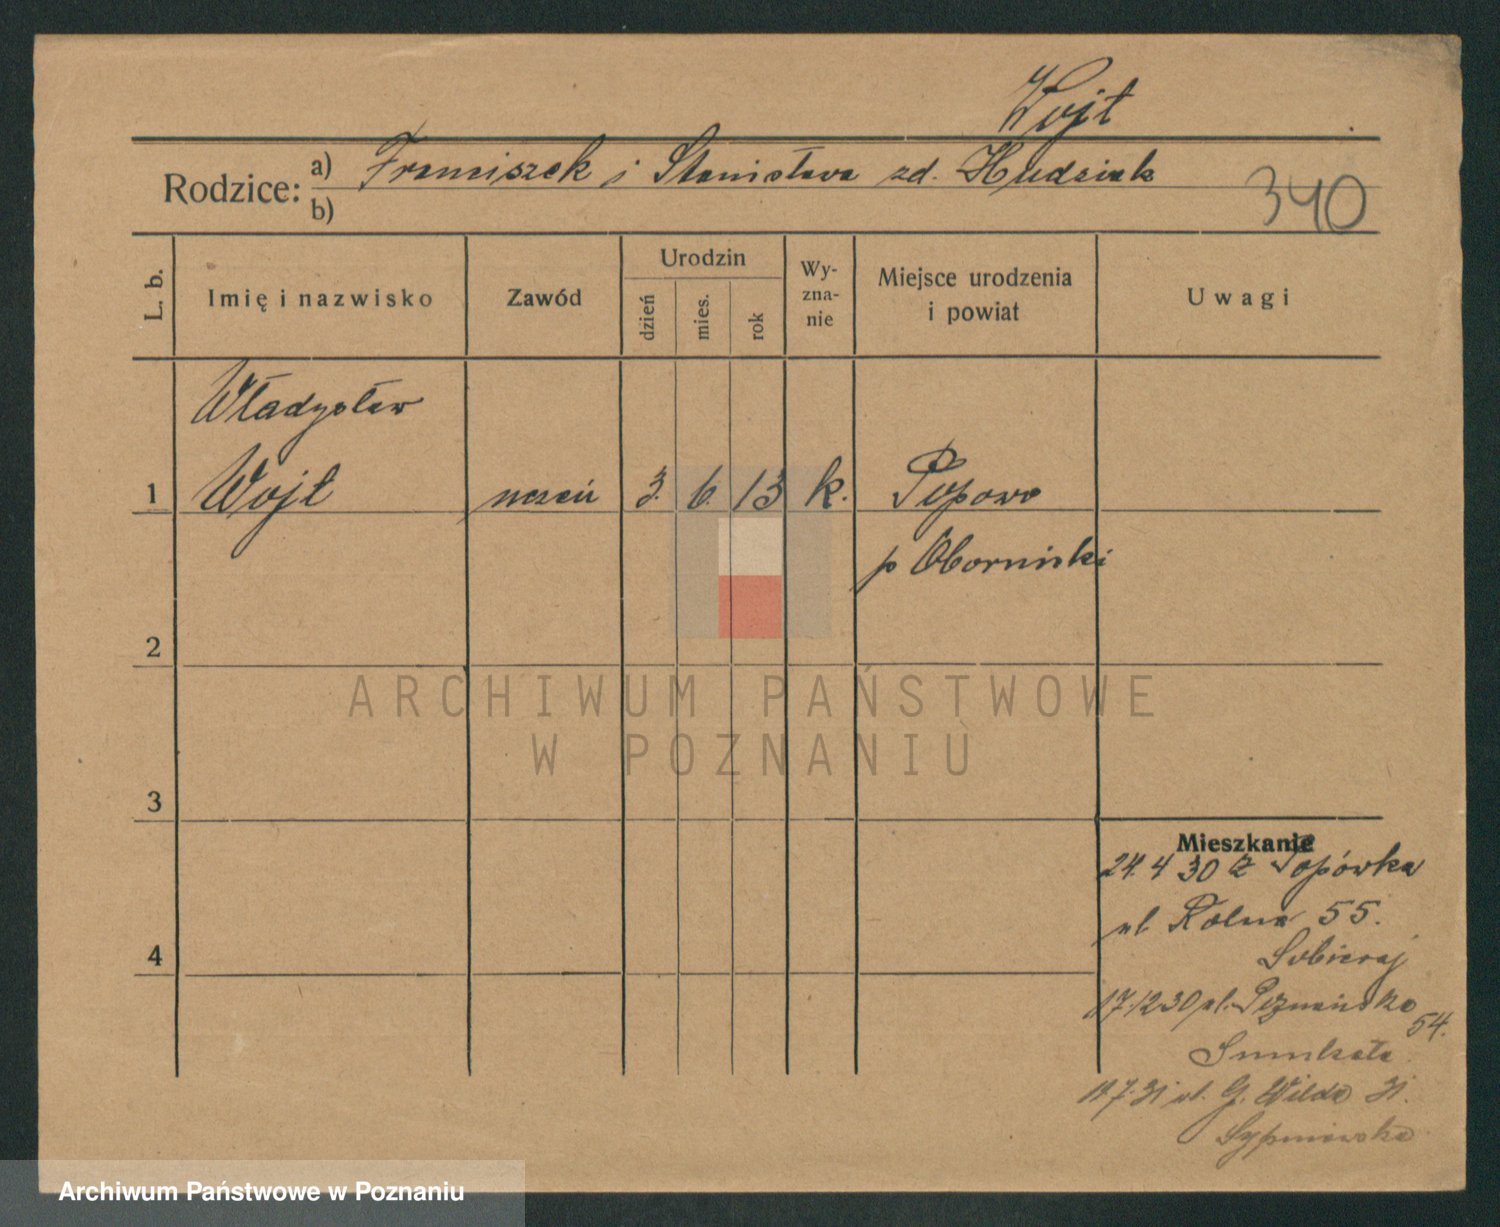 Wojt
Rodzice: a) Franciszek i Stanisława zd. Hudziak
b)
340
L. b.
Imię i nazwisko
Zawód
Urodzin
dzień
mies.
rok
Wy-
zna-
nie
Miejsce urodzenia
i powiat
Uwagi
Władysław
1 Wojt uczeń 3. 6. 13 k. Popowo
p Obornicki
2
3
4
Mieszkanie
24. 4 30 z Popówka
ul Rolna 55.
Sobieraj
17.12 30 ul. Poznańska
54.
ul. G. Wilda 31.
Sypniewska
ARCHIWUM PAŃSTWOWE
W POZNANIU
Archiwum Państwowe w Poznaniu